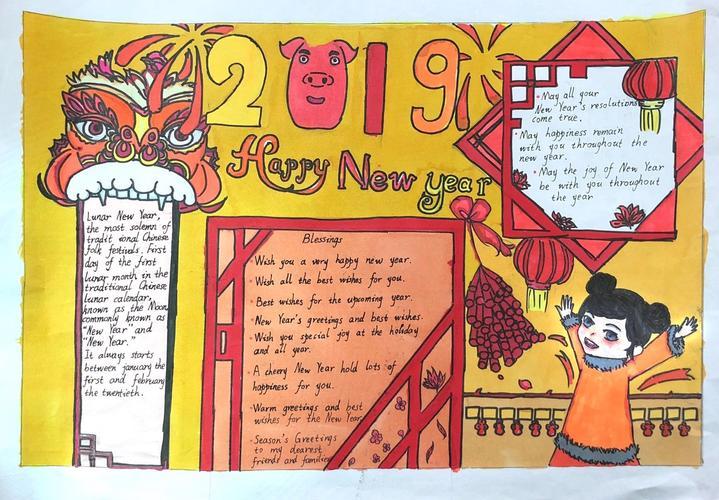 2019
Happy New year
Lunar New Year,
the most solemn of
tradit ional Chinese
folk festivals. First
day of the first
lunar month in the
traditional Chinese
lunar calendar,
known as the Moon,
commonly known as
"New Year" and
"New Year."
It always starts
between january the
first and february
the twentieth.
Blessings
Wish you a very happy new year.
Wish all the best wishes for you.
Best wishes for the upcoming year.
New Year's greetings and best wishes.
Wish you special joy at the holiday
and all year.
A cheery New Year hold lots of
happiness for you.
Warm greetings and best
wishes for the New Year
Season's Greetings
to my dearest
friends and families
May all your
New Year's resolutions
come true.
May happiness remain
with you throughout the
new year.
May the joy of New Year
be with you throughout
the year